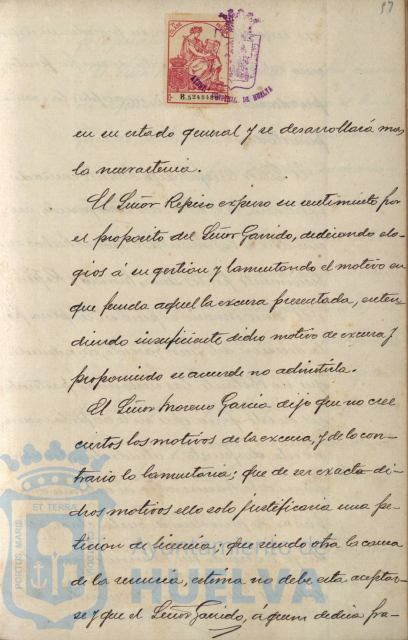 57
en su estado general y se desarrollará mas
la neurastenia.
El Señor Repiso expuso su sentimiento por
el proposito del Señor Garrido, dedicando elo-
gios á su gestión y lamentando el motivo en
que funda aquel la excusa presentada, enten-
diendo insuficiente dicho motivo de excusa y
proponiendo se acuerde no admitirla.
El Señor Moreno Garcia dijo que no cree
ciertos los motivos de la excusa, y de lo con-
trario lo lamentaria; que de ser exacta di-
chos motivos ello solo justificaria una pe-
ticion de licencia; que siendo otra la causa
de la renuncia, estima no debe esta aceptar-
se y que el Señor Garrido, á quien dedica fra-
PORTUS MARIS
ET TERRAE
Ayuntamiento de
HUELVA